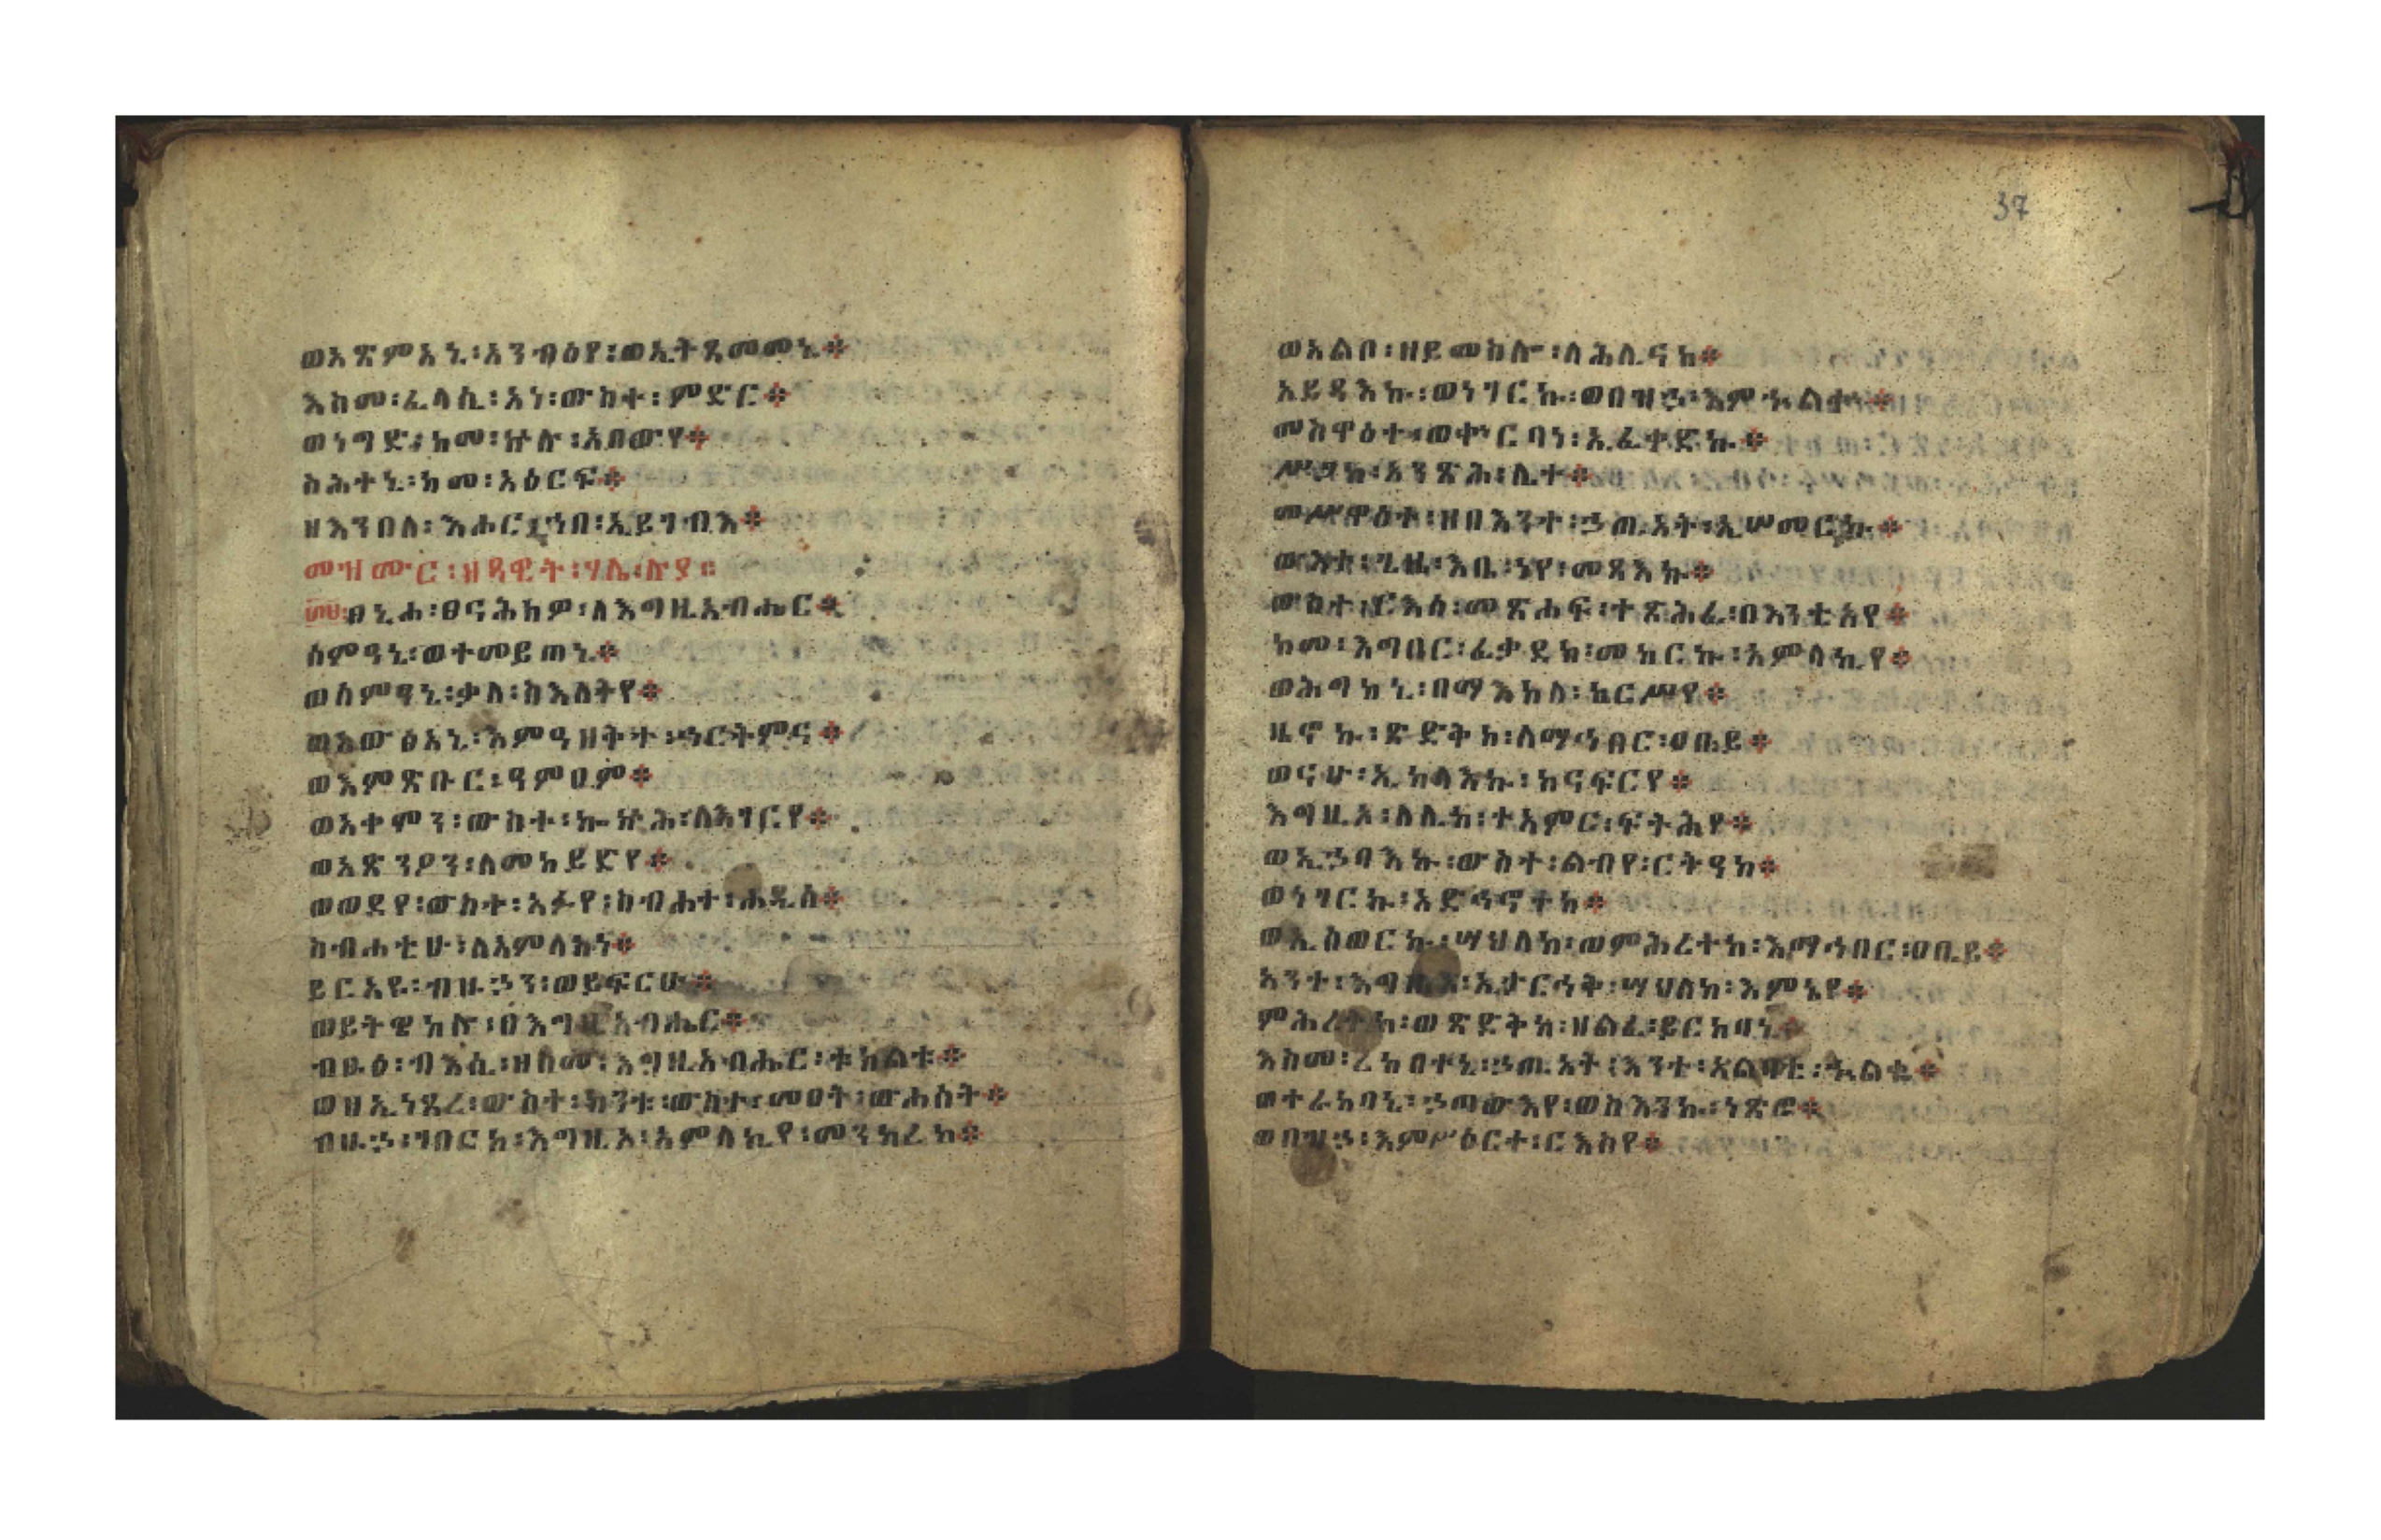 ወአጽምአኒ፡አንብዕየ፡ወኢትጸመመኒ፨
እስመ፡ፈላሲ፡አነ፡ውስተ፡ምድር፨
ወነግድ፡ከመ፡ኵሉ፡አበውየ፨
ስሕተኒ፡ከመ፡አዕርፍ፨
ዘእንበለ፡እሖር፡ኀበ፡ኢይገብእ፨
መዝሙር፡ዘዳዊት፡ሃሌ፡ሉያ።
ፀኒሐ፡ፀናሕክዎ፡ለእግዚአብሔር፨
ሰምዓኒ፡ወተመይጠኒ፨
ወሰምዓኒ፡ቃለ፡ስእለትየ፨
ወአውፅአኒ፡እምዓዘቅተ፡ኀርትምና፨
ወእምጽቡር፡ዓምዐም፨
ወአቀሞን፡ውስተ፡ኰኵሕ፡ለእገርየ፨
ወአጽንዖን፡ለመከይድየ፨
ወወደየ፡ውስተ፡አፉየ፡ስብሐተ፡ሐዲሰ፨
ስብሐቲሁ፡ለአምላክነ፨
ይርአዩ፡ብዙኃን፡ወይፍርሁ፨
ወይትዌከሉ፡በእግዚአብሔር፨
ብፁዕ፡ብእሲ፡ዘስመ፡እግዚአብሔር፡ትክልቱ፨
ወዘኢነጸረ፡ውስተ፡ከንቱ፡ውስተ፡መዐት፡ውሐሰት፨
ብዙኃ፡ገበርከ፡እግዚኦ፡አምላኪየ፡መንክረከ፨
37
ወአልቦ፡ዘይመስሎ፡ለሕሊናከ፨
አይዳእኩ፡ወነገርኩ፡ወበዝኁ፡እምኍልቍ፨
መስዋዕተ፡ወቍርባነ፡ኢፈቀድኩ፨
ሥጋከ፡አንጽሕ፡ሊተ፨
መሥዋዕተ፡ዘበእንተ፡ኃጢአት፡ኢሠመርኩ፨
ውእተ፡ጊዜ፡እቤ፡ነየ፡መጻእኩ፨
ውስተ፡ርእሰ፡መጽሐፍ፡ተጽሕፈ፡በእንቲአየ፨
ከመ፡እግበር፡ፈቃደከ፡መከርኩ፡አምላኪየ፨
ወሕግከኒ፡በማእከለ፡ከርሥየ፨
ዜኖኩ፡ጽድቅከ፡ለማኅበር፡ዐቢይ፨
ወናሁ፡ኢከላእኩ፡ከናፍርየ፨
እግዚኦ፡ለሊከ፡ተአምር፡ፍትሕየ፨
ወኢኃባእኩ፡ውስተ፡ልብየ፡ርትዓከ፨
ወነገርኩ፡አድኅኖተከ፨
ወኢሰወርኩ፡ሣህለከ፡ወምሕረተከ፡እማኅበር፡ዐቢይ፨
አንተ፡እግዚኦ፡ኢታርኅቅ፡ሣህለከ፡እምኔየ፨
ምሕረትከ፡ወጽድቅከ፡ዘልፈ፡ይርከባኒ፨
እስመ፡ረከበተኒ፡ኃጢአት፡እንተ፡አልባቲ፡ኍልቈ፨
ወተራከባኒ፡ኃጣውእየ፡ወስእንኩ፡ነጽሮ፨
ወበዝኃ፡እምሥዕርተ፡ርእስየ፨